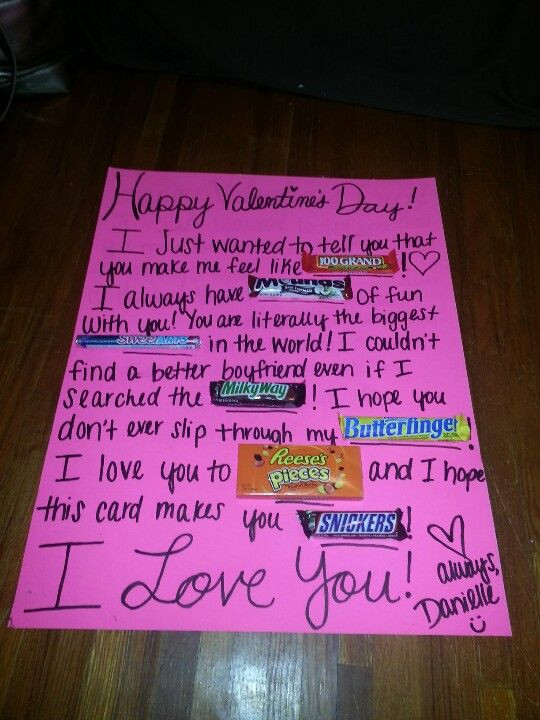 Happy Valentine's Day!
I Just wanted to tell you that
you make me feel like 100 GRAND !
I always have Mounds of fun
with you! You are literally the biggest
SweeTARTS in the world! I couldn't
find a better boyfriend even if I
searched the Milky Way ! I hope you
don't ever slip through my Butterfinger !
I love you to Reese's Pieces and I hope
this card makes you SNICKERS !
I Love You!
always,
Danielle